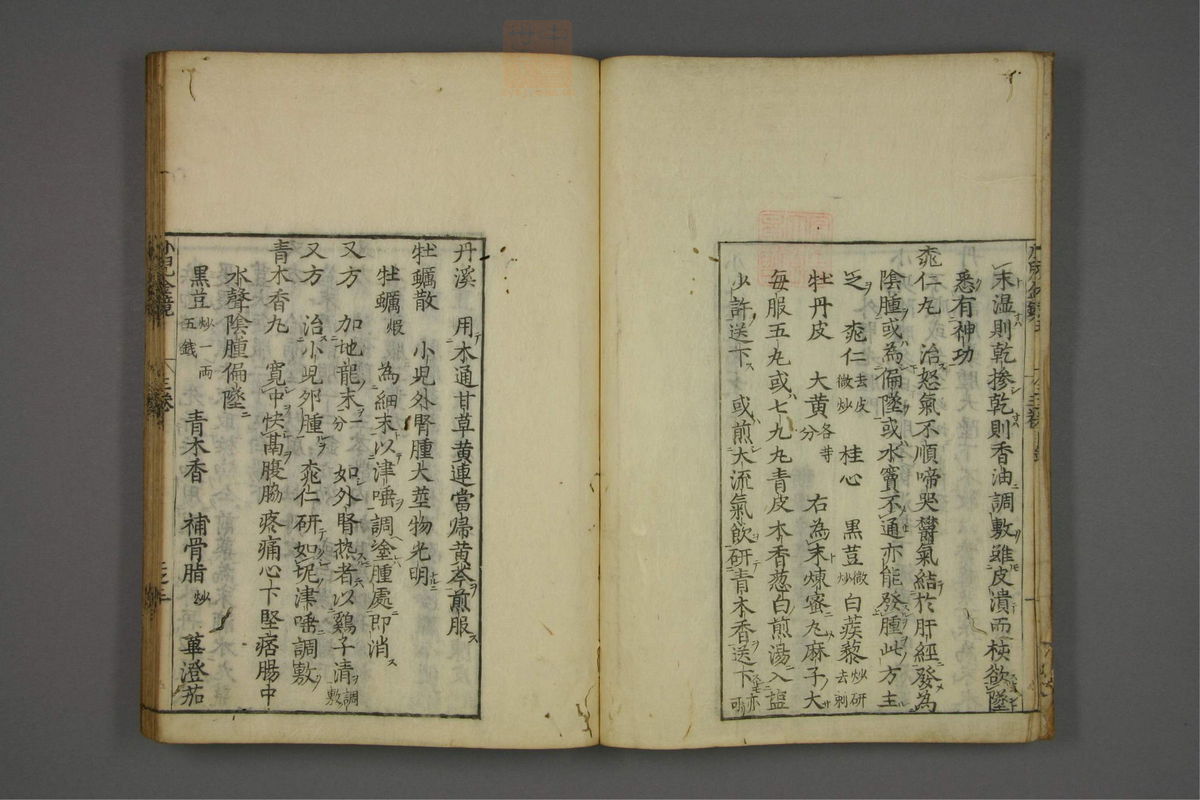 末温則乾摻乾則香油調敷雖皮潰而核欲墜
悉有神功
㮈仁丸　治怒氣不順啼哭欝氣結於肝經發為
陰腫或為偏墜或水竇不通亦能發腫此方主
之　㮈仁去皮微炒　桂心　黒荳微炒　白蒺藜炒研去刺
牡丹皮　大黄各等分　右為末煉蜜丸麻子大
毎服五丸或七九丸青皮木香葱白煎湯入塩
少許送下　或煎大流氣飲研青木香送下亦可
丹溪　用木通甘草黄連當帰黄芩煎服
牡蠣散　小児外腎腫大莖物光明
牡蠣煆　為細末以津唾調塗腫處即消
又方　加地龍末一分　如外腎热者以鷄子清調敷
又方　治小児卵腫　㮈仁研如坭津唾調敷
青木香丸　寛中快鬲腹脇疼痛心下堅痞腸中
水聲陰腫偏墜
黒荳炒一両五銭　青木香　補骨脂炒　蓽澄茄